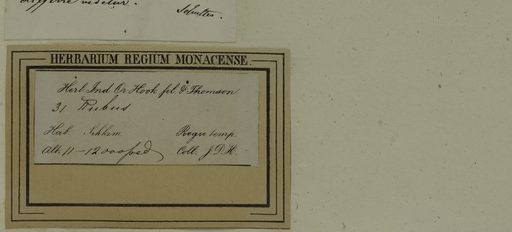 differre videtur.
Schultes.
HERBARIUM REGIUM MONACENSE.
Herb. Ind. Or. Hook fil & Thomson
31 Rubus
Hab. Sikkim Regio temp.
Alt. 11-12000 ped Coll. J. D. H.